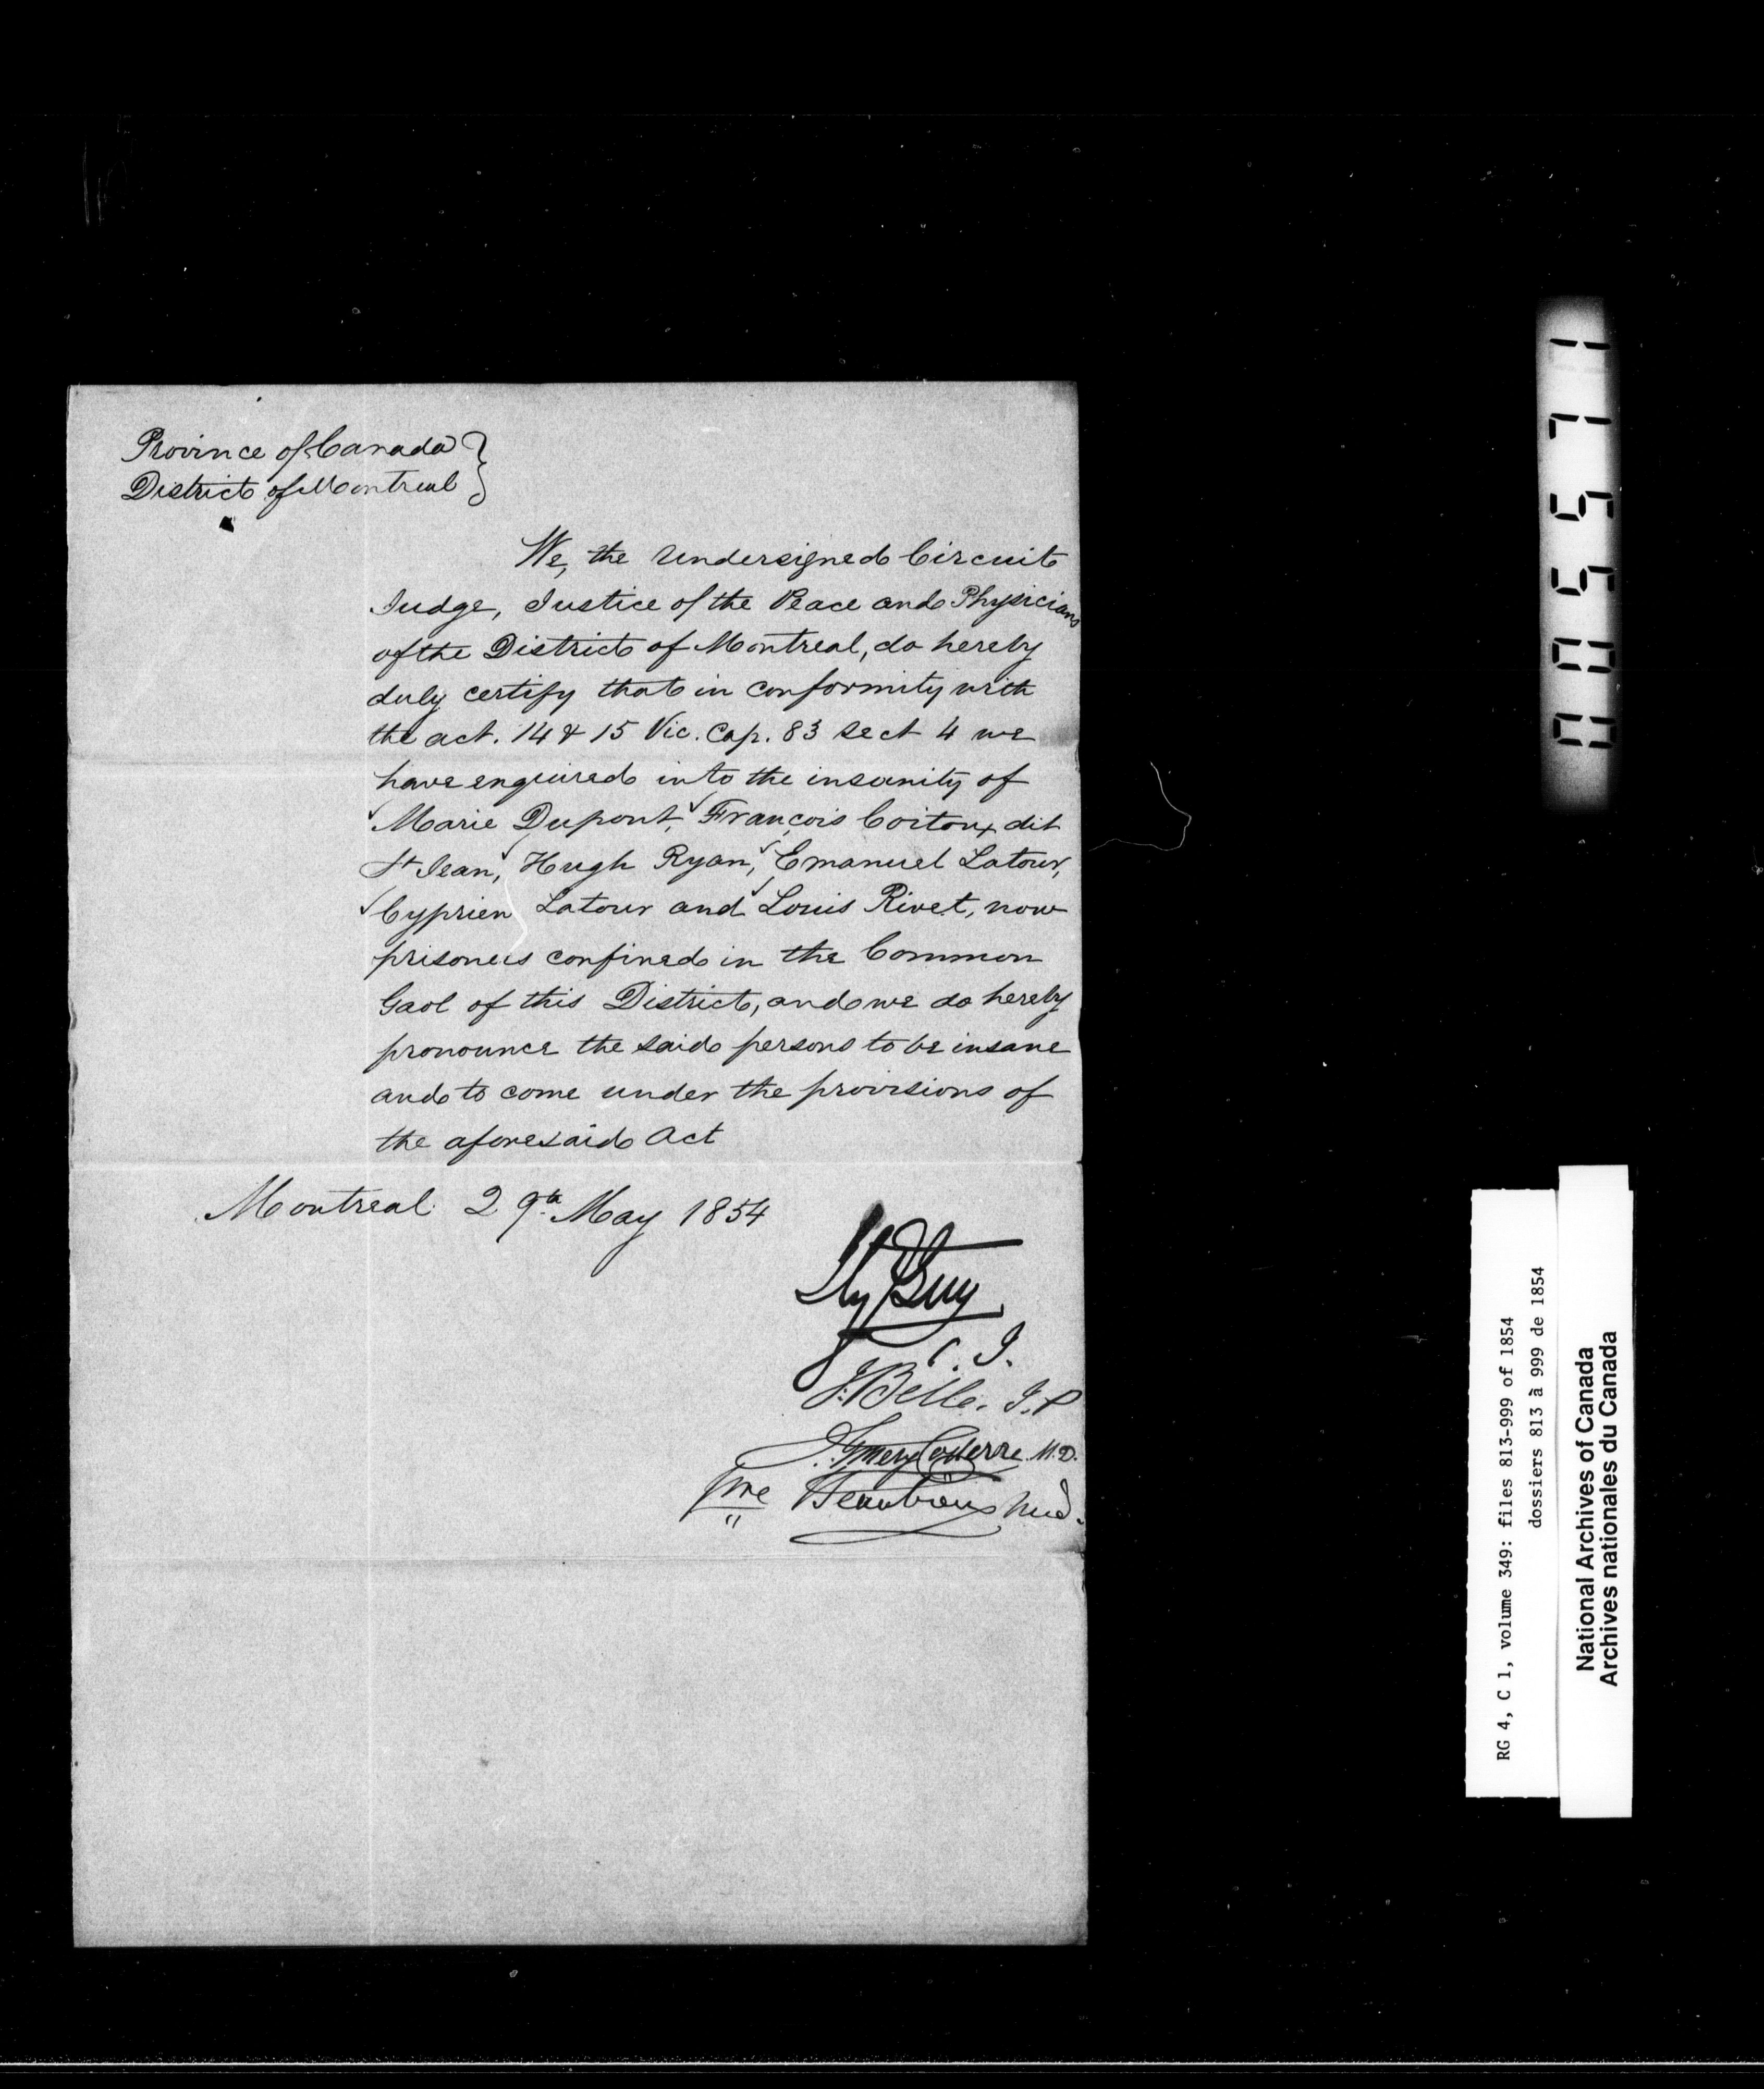 Province of Canada }
District of Montreal }
We, the Undersigned Circuit
Judge, Justice of the Peace and Physicians
of the District of Montreal, do hereby
duly certify that in conformity with
the act. 14 & 15 Vic. Cap. 83 sect 4 we
have enquired into the insanity of
Marie Dupont, François Coitoux dit
St Jean, Hugh Ryan, Emanuel Latour,
Cyprien Latour and Louis Rivet, now
prisoners confined in the Common
Gaol of this District, and we do hereby
pronounce the said persons to be insane
and to come under the provisions of
the aforesaid Act
Montreal 29th May 1854
Hy Guy
C. J.
J. Belle. J.P
J. Emery Coderre M.D.
Pre Beaubien md.
000 5571
RG 4, C 1, volume 349: files 813-999 of 1854
dossiers 813 à 999 de 1854
National Archives of Canada
Archives nationales du Canada